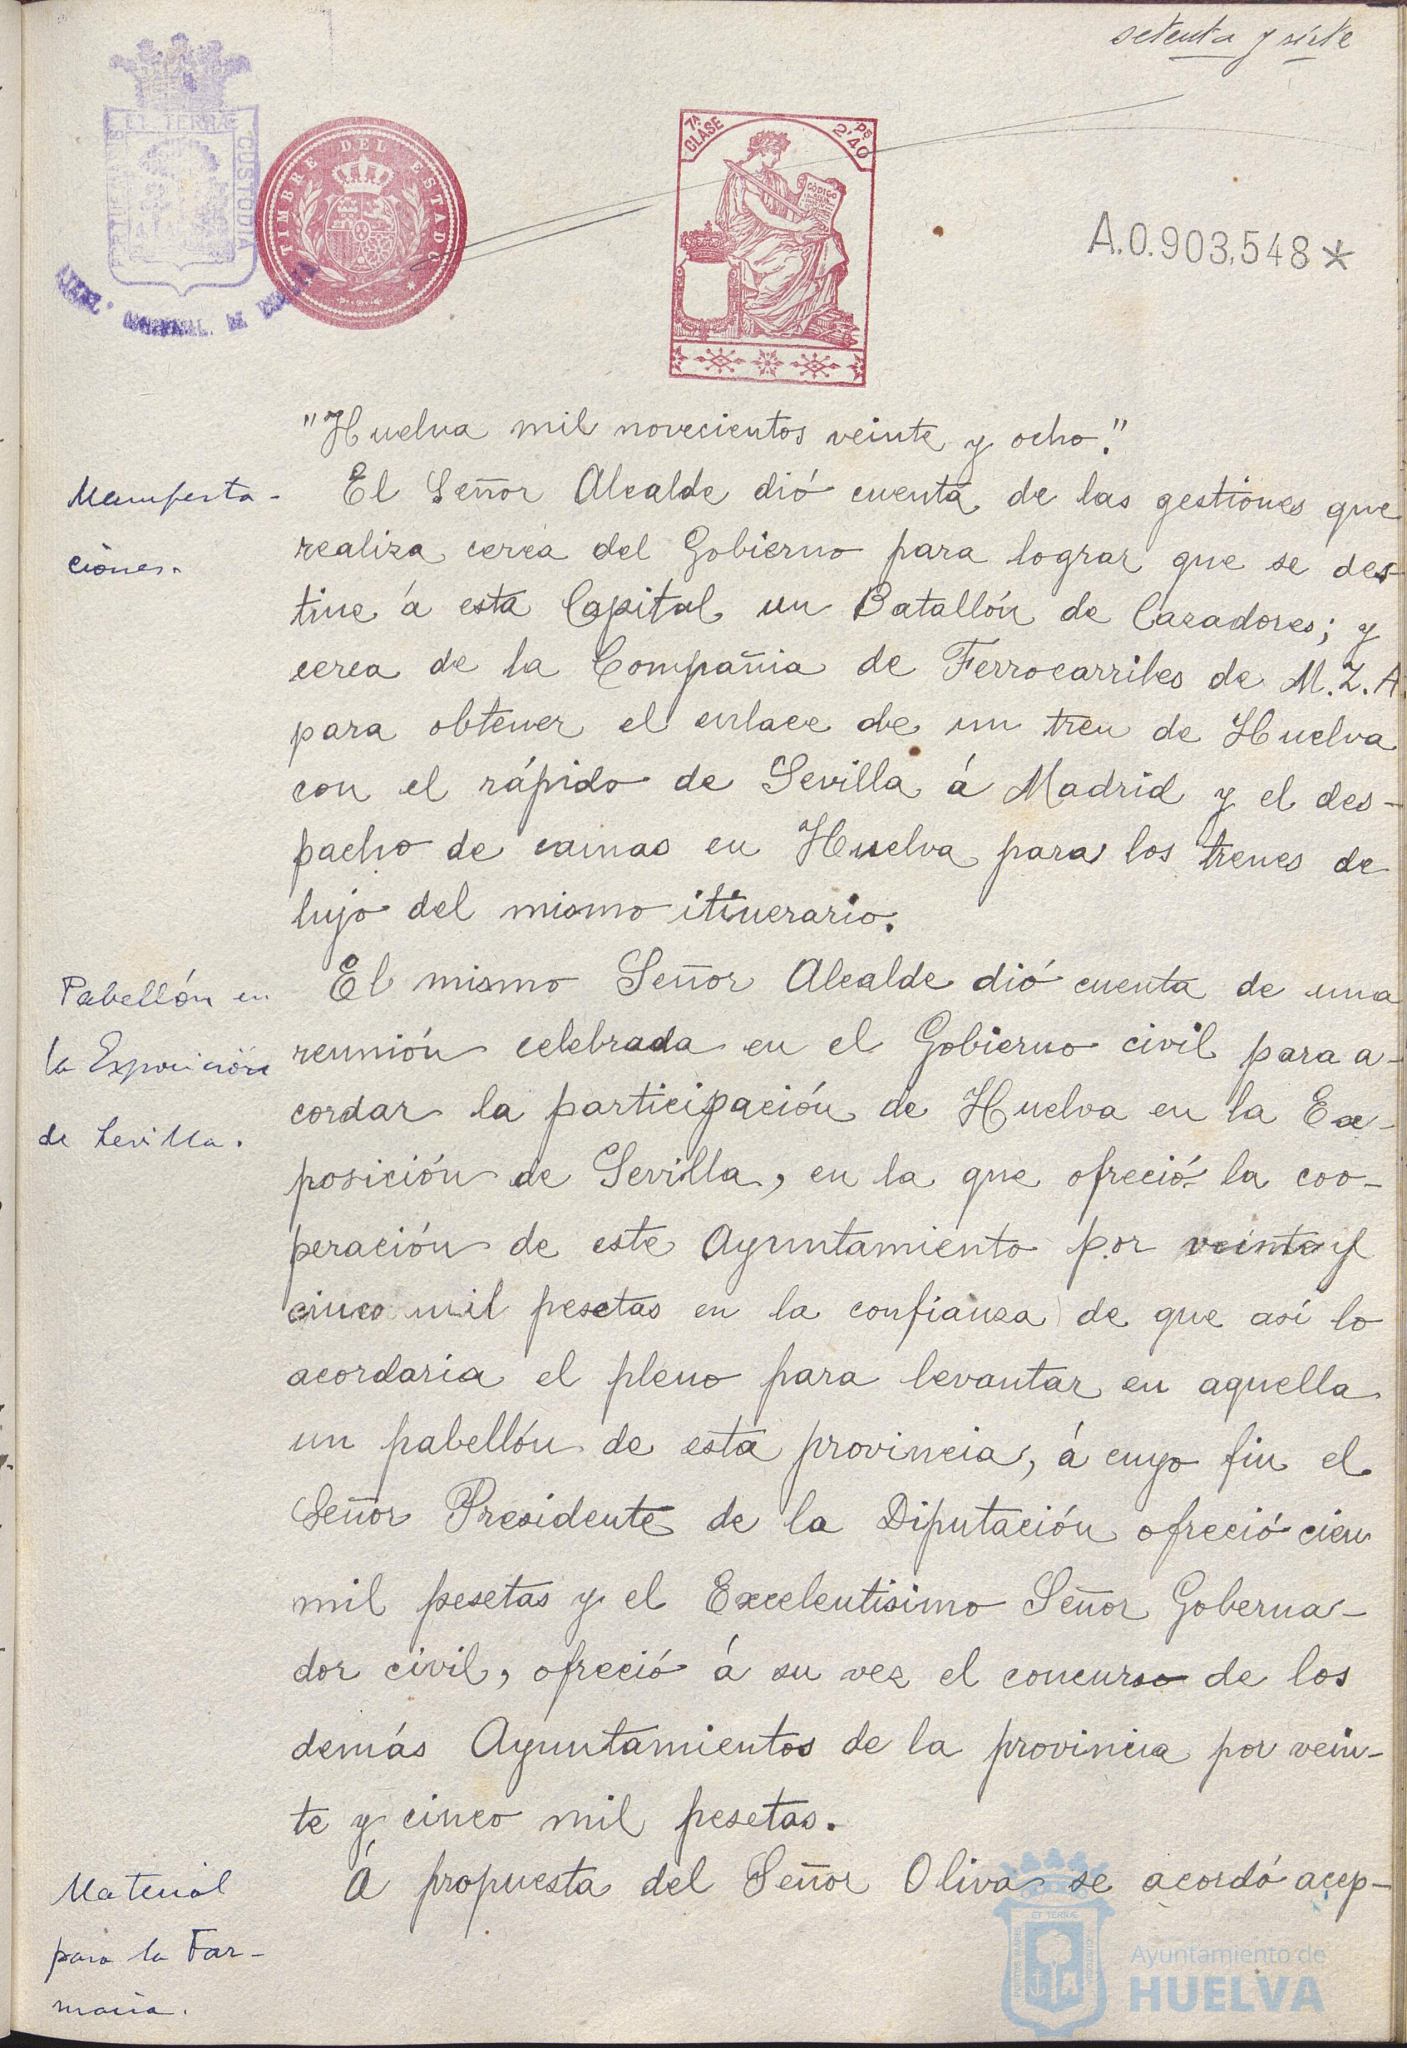 setenta y siete
PORTUS MARIS ET TERRÆ CUSTODIA
TIMBRE DEL ESTADO
7ª CLASE
2'40 Ps
CÓDIGO
A.0.903,548*
"Huelva mil novecientos veinte y ocho."
Manifesta-
ciones.
El Señor Alcalde dió cuenta de las gestiones que
realiza cerca del Gobierno para lograr que se des-
tine á esta Capital un Batallón de Cazadores; y
cerca de la Compañia de Ferrocarriles de M.Z.A.
para obtener el enlace de un tren de Huelva
con el rápido de Sevilla á Madrid y el des-
pacho de camas en Huelva para los trenes de
lujo del mismo itinerario.
Pabellón en
la Exposición
de Sevilla.
El mismo Señor Alcalde dió cuenta de una
reunión celebrada en el Gobierno civil para a-
cordar la participación de Huelva en la Ex-
posición de Sevilla, en la que ofreció la coo-
peración de este Ayuntamiento por veinte y
cinco mil pesetas en la confianza de que así lo
acordaria el pleno para levantar en aquella
un pabellón de esta provincia, á cuyo fin el
Señor Presidente de la Diputación ofreció cien
mil pesetas y el Excelentisimo Señor Goberna-
dor civil, ofreció á su vez el concurso de los
demás Ayuntamientos de la provincia por vein-
te y cinco mil pesetas.
Material
para la Far-
macia.
Á propuesta del Señor Oliva se acordó acep-
PORTUS MARIS ET TERRÆ CUSTODIA
Ayuntamiento de
HUELVA